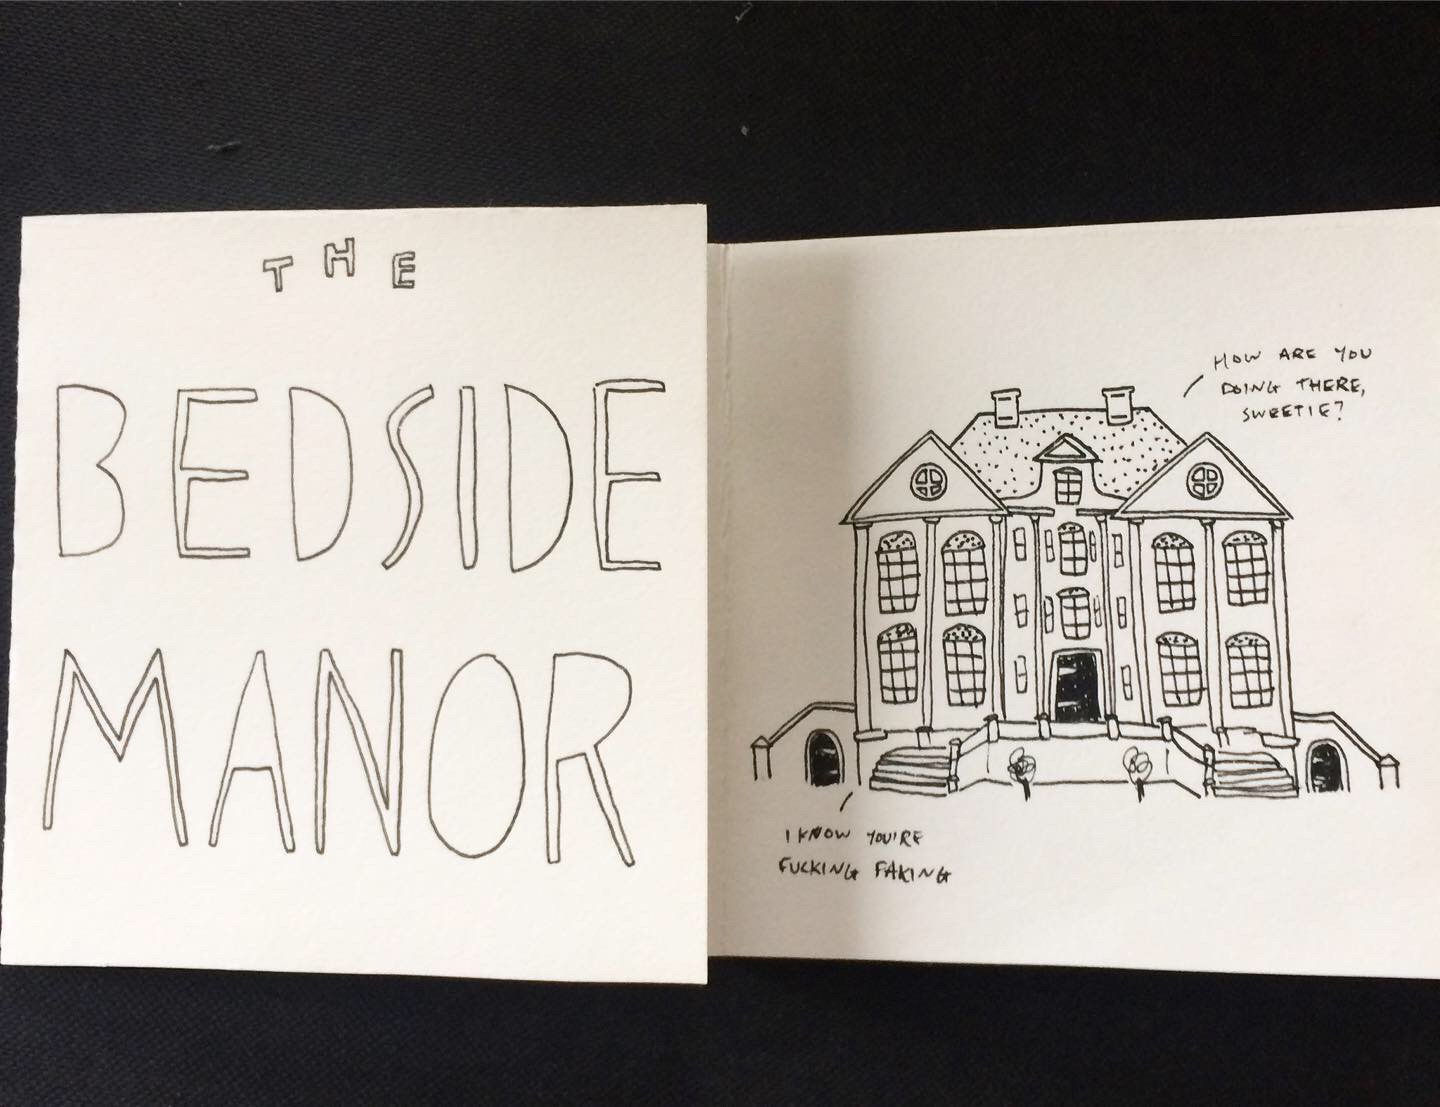 THE
BEDSIDE
MANOR
HOW ARE YOU
DOING THERE,
SWEETIE?
I KNOW YOU'RE
FUCKING FAKING